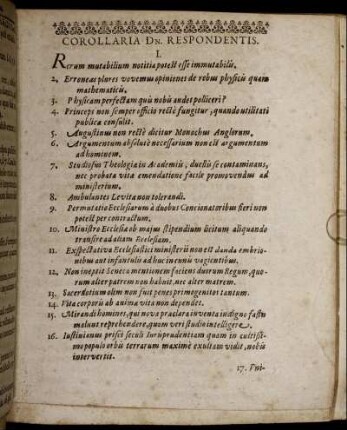 COROLLARIA DN. RESPONDENTIS.
I.
Rerum mutabilium notitia potest esse immutabilis.
2. Erroneas plures vovemus opiniones de rebus physicis quam
mathematicis.
3. Physicam perfectam quis nobis audet polliceri?
4. Princeps non semper officio rectè fungitur, quando utilitati
publicæ consulit.
5. Augustinus non rectè dicitur Monachus Anglorum.
6. Argumentum absolutè necessarium non est argumentum
ad hominem.
7. Studiosus Theologia in Academiis, duellis se contaminans,
nec probata vita emendatione facile promovendus ad
ministerium.
8. Ambulantes Levita non tolerandi.
9. Permutatio Ecclesiarum à duobus Concionatoribus fieri non
potest per contractum.
10. Ministro Ecclesia ob majus stipendium licitum aliquando
transire ad aliam Ecclesiam.
11. Exspectativa Ecclesiastici ministerii non est danda embrio-
nibus aut infantulis ad huc in cunis vagientibus.
12. Non ineptit Seneca mentionem faciens duorum Regum, quo-
rum alter patrem non habuit, nec alter matrem.
13. Sacerdotium olim non fuit penes primogenitos tantum.
14. Vita corporis ab anima vita non dependet.
15. Mirandi homines, qui nova præclara inventa indigno fastu
malunt reprehendere, quam veri studio intelligere.
16. Justinianus prisci seculi Jurisprudentiam quam in cultiss-
mo populo orbis terrarum maximè exultam vidit, nobis
intervertit.
17.